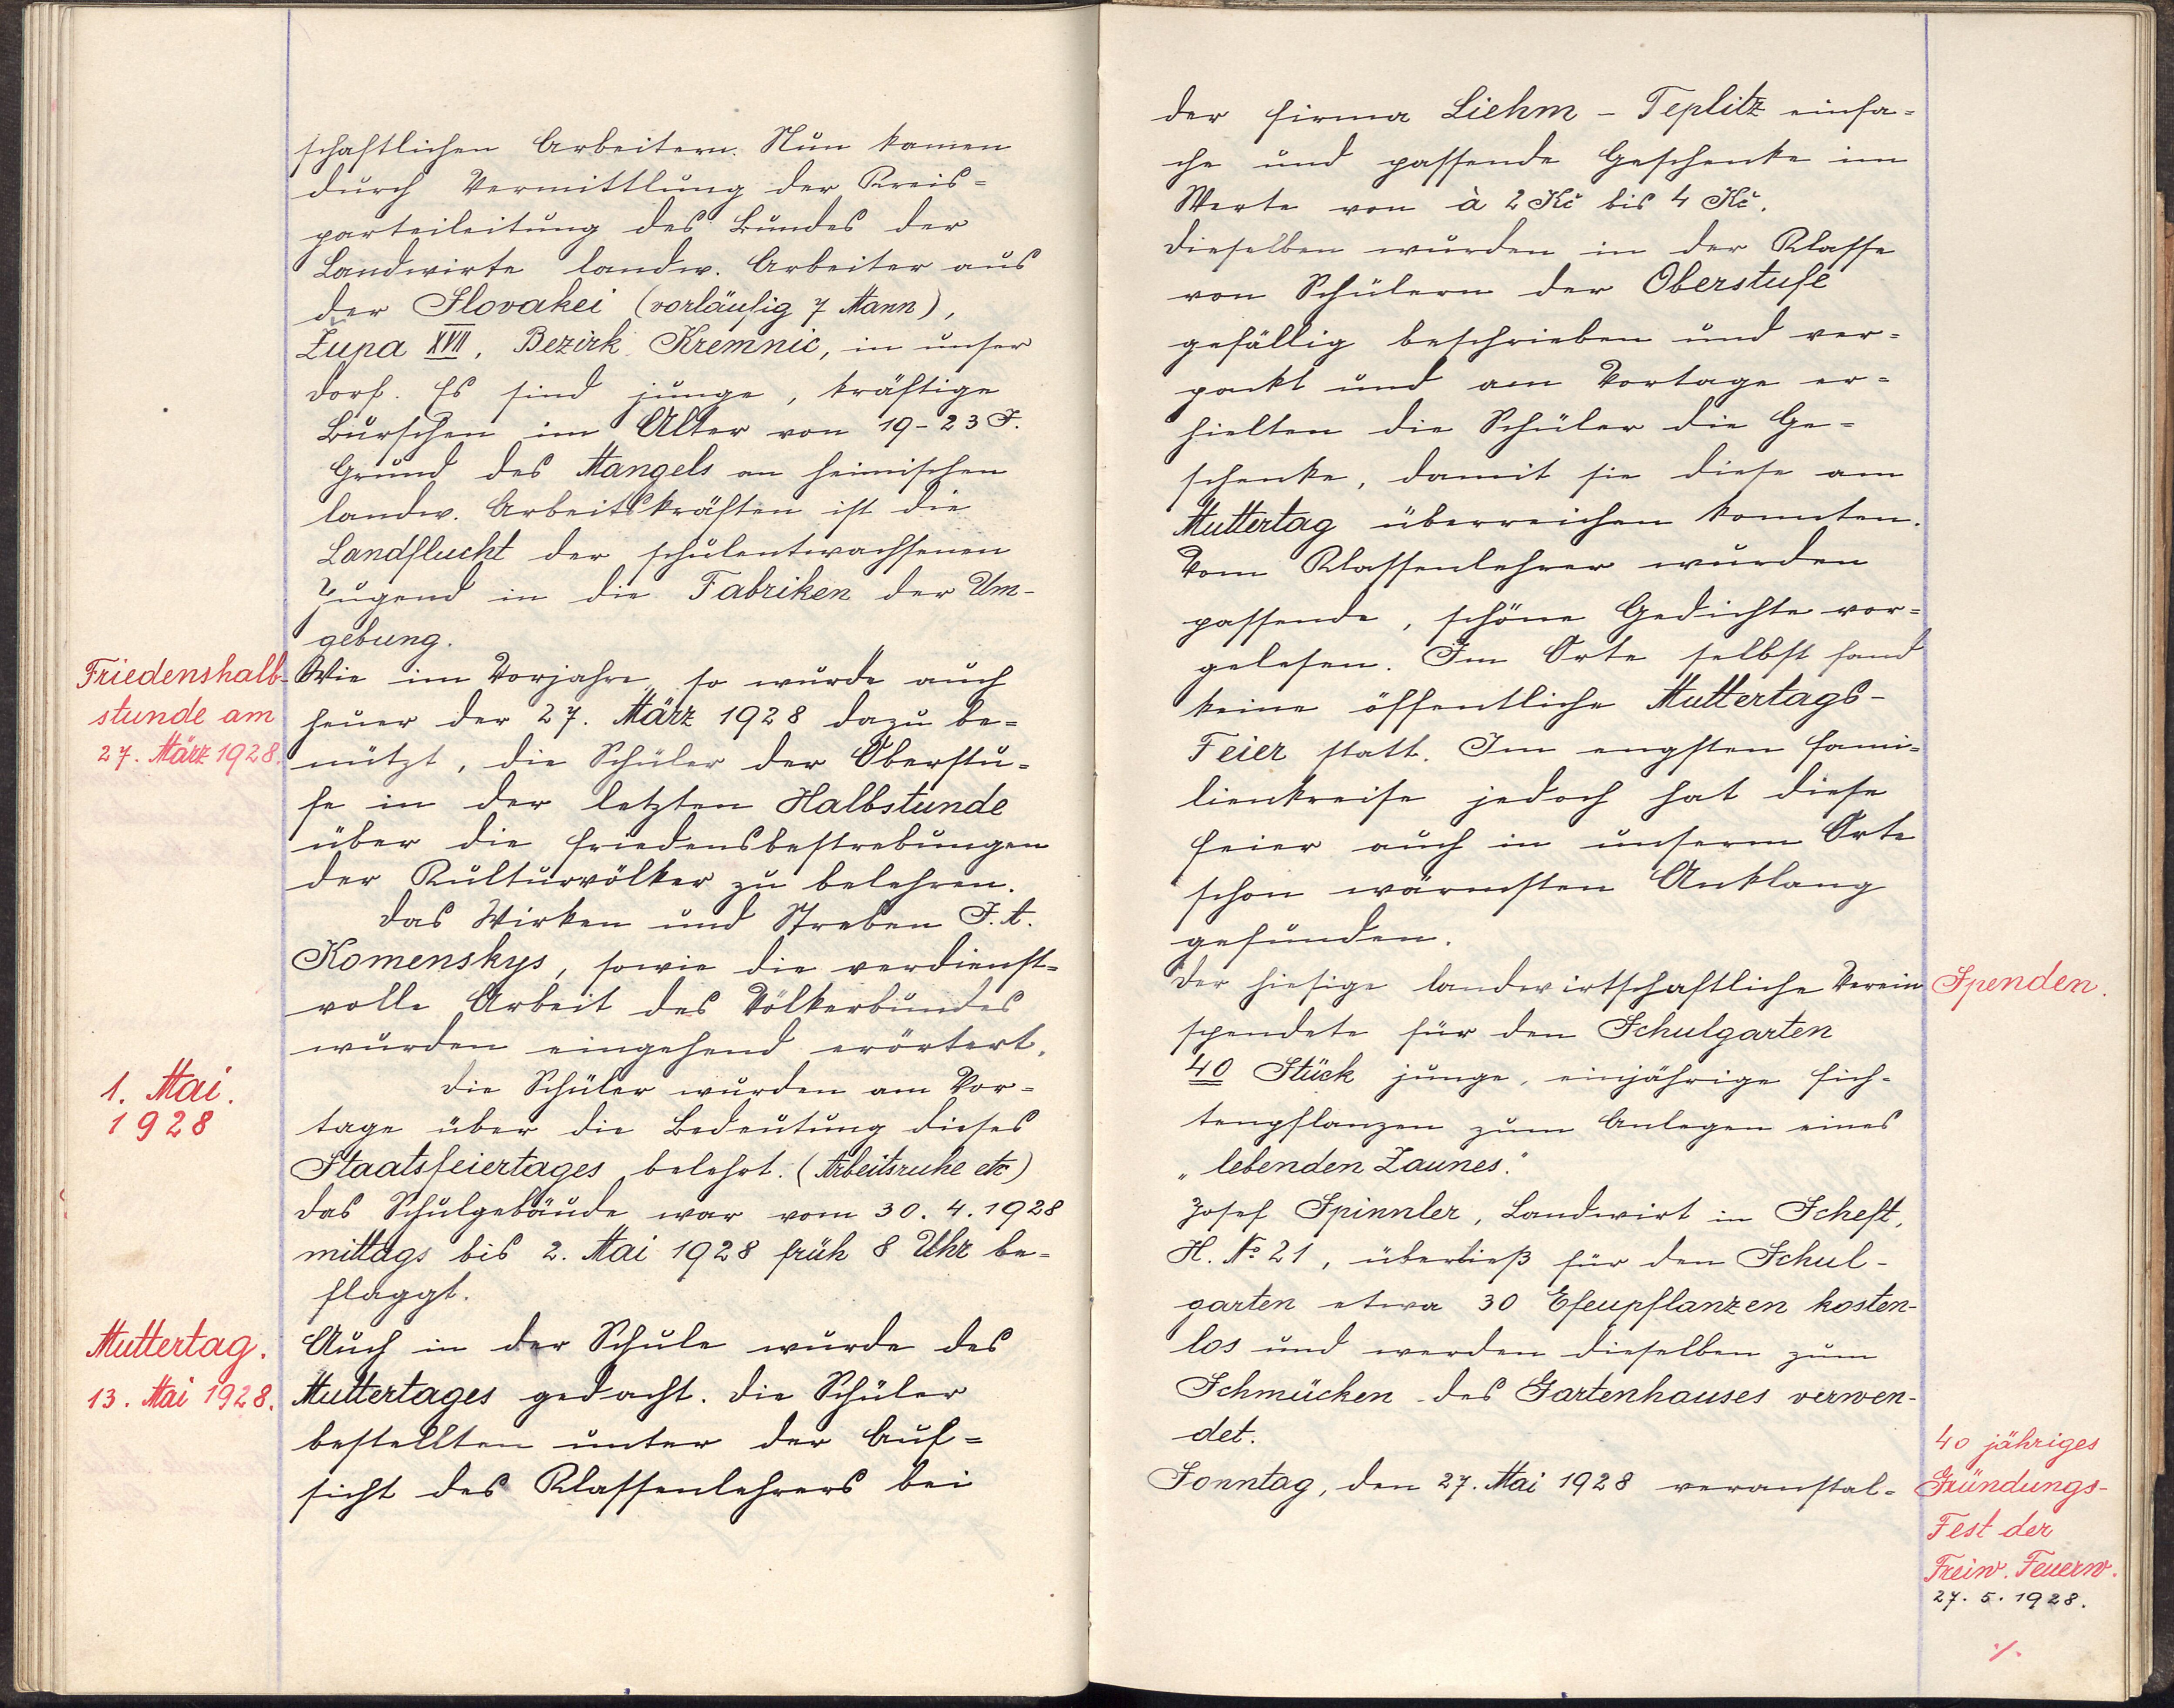 schaftlichen Arbeitern. Nun kamen
durch Vermittlung der Kreis=
parteileitung des Bundes der
Landwirte landw. Arbeiter aus
der Slovakei (vorläufig 7 Mann),
Župa XVII, Bezirk Kremnic, in unser
Dorf. Es sind junge, kräftige
Burschen im Alter von 19-23 J.
Grund des Mangels an heimischen
landw. Arbeitskräften ist die
Landflucht der schulentwachsenen
Jugend in die Fabriken der Um-
gebung.
Friedenshalb-
stunde am
27. März 1928.
Wie im Vorjahre, so wurde auch
heuer der 27. März 1928 dazu be=
nützt, die Schüler der Oberstu=
fe in der letzten Halbstunde
über die Friedensbestrebungen
der Kulturvölker zu belehren.
Das Wirken und Streben J. A.
Komenskys, sowie die verdienst=
volle Arbeit des Völkerbundes
wurden eingehend erörtert.
1. Mai.
1928
Die Schüler wurden am Vor=
tage über die Bedeutung dieses
Staatsfeiertages belehrt. (Arbeitsruhe etc)
Das Schulgebäude war vom 30. 4. 1928
mittags bis 2. Mai 1928 früh 8 Uhr be=
flaggt.
Muttertag.
13. Mai 1928.
Auch in der Schule wurde des
Muttertages gedacht. Die Schüler
bestellten unter der Auf=
sicht des Klassenlehrers bei
der Firma Liehm - Teplitz einfa=
che und passende Geschenke im
Werte von à 2 Kč bis 4 Kč.
Dieselben wurden in der Klasse
von Schülern der Oberstufe
gefällig beschrieben und ver=
packt und am Vortage er=
hielten die Schüler die Ge=
schenke, damit sie diese am
Muttertag überreichen konnten.
Vom Klassenlehrer wurden
passende, schöne Gedichte vor=
gelesen. Im Orte selbst fand
keine öffentliche Muttertags-
Feier statt. Im engsten Fami=
lienkreise jedoch hat diese
Feier auch in unserem Orte
schon wärmsten Anklang
gefunden.
Der hiesige landwirtschaftliche Verein
Spenden.
spendete für den Schulgarten
40 Stück junge, einjährige Fich=
tenpflanzen zum Anlegen eines
„lebenden Zaunes."
Josef Spinnler, Landwirt in Scheft,
H. № 21, überließ für den Schul-
garten etwa 30 Efeupflanzen kosten-
los und werden dieselben zum
Schmücken des Gartenhauses verwen-
det.
Sonntag, den 27. Mai 1928 veranstal=
40 jähriges
Gründungs-
Fest der
Freiw. Feuerw.
27. 5. 1928.
./.